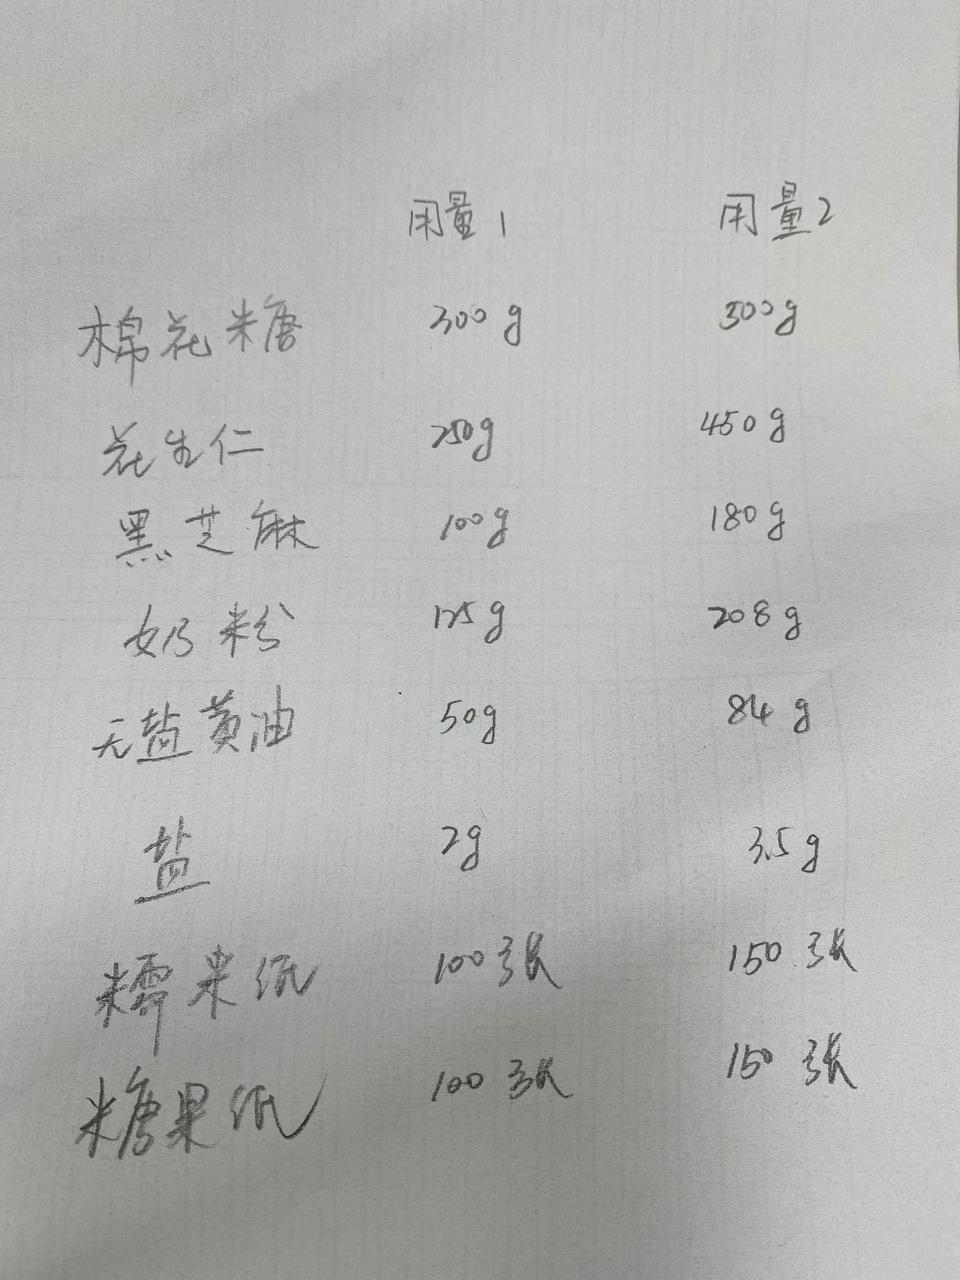 用量1 用量2
棉花糖 300g 500g
花生仁 250g 450g
黑芝麻 100g 180g
奶粉 125g 208g
无盐黄油 50g 84g
盐 2g 3.5g
糯米纸 100张 150张
糖果纸 100张 150张